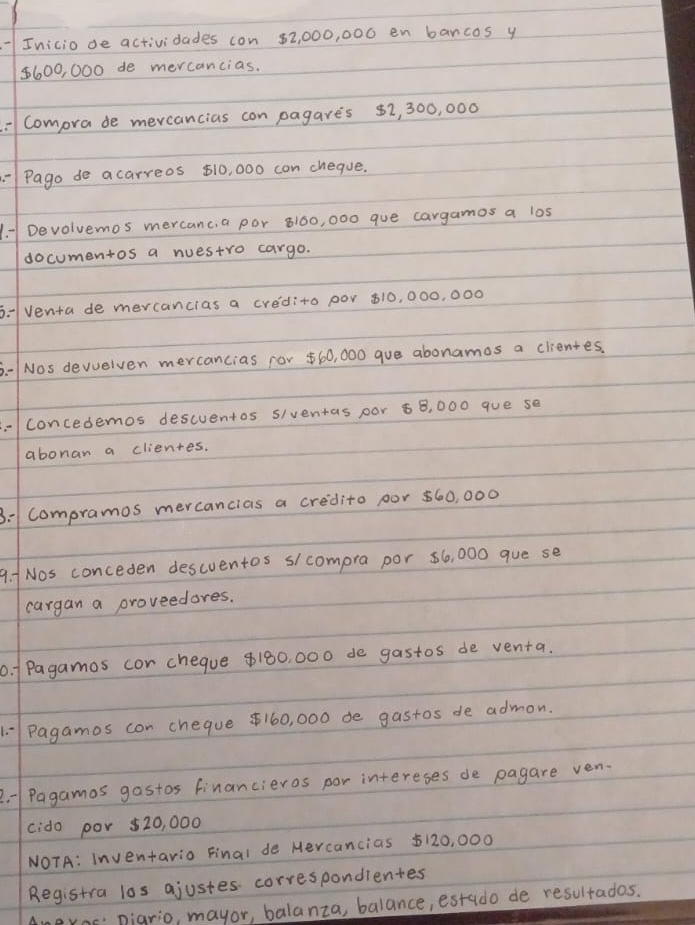 .- Inicio de actividades con $2,000,000 en bancos y
$600,000 de mercancias.
.- Compra de mercancias con pagarés $2,300,000
.- Pago de acarreos $10,000 con cheque.
.- Devolvemos mercancia por $100,000 que cargamos a los
documentos a nuestro cargo.
5.- Venta de mercancias a crédito por $10,000,000
6.- Nos devuelven mercancias por $60,000 que abonamos a clientes.
.- Concedemos descuentos s/ventas por $8,000 que se
abonan a clientes.
8.- Compramos mercancias a crédito por $60,000
9.- Nos conceden descuentos s/compra por $6,000 que se
cargan a proveedores.
0.- Pagamos con cheque $180,000 de gastos de venta.
1.- Pagamos con cheque $160,000 de gastos de admon.
2.- Pagamos gastos financieros por intereses de pagare ven-
cido por $20,000
NOTA: Inventario Final de Mercancias $120,000
Registra los ajustes correspondientes
Anexos: Diario, mayor, balanza, balance, estado de resultados.